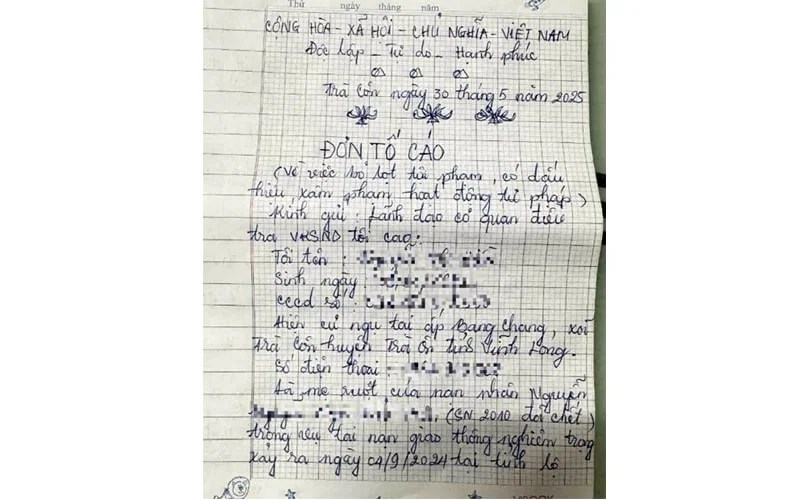 Thứ ngày tháng năm
CỘNG HÒA - XÃ HỘI - CHỦ NGHĨA - VIỆT NAM
Độc lập - Tự do - Hạnh phúc
Trà Côn ngày 30 tháng 5 năm 2025
ĐƠN TỐ CÁO
(Về việc bỏ lọt tội phạm, có dấu
hiệu xâm phạm hoạt động tư pháp)
Kính gửi: Lãnh đạo cơ quan điều
tra VKSND tối cao.
Tôi tên :
Sinh ngày
cccd số :
Hiện cư ngụ tại ấp Bang Chang, xã
Trà Côn huyện Trà Ôn tỉnh Vĩnh Long.
Số điện thoại :
Là mẹ ruột của nạn nhân Nguyễn
(SN 2010 đã chết)
trong vụ tai nạn giao thông nghiêm trọng
xảy ra ngày 04/9/2024 tại tỉnh lộ